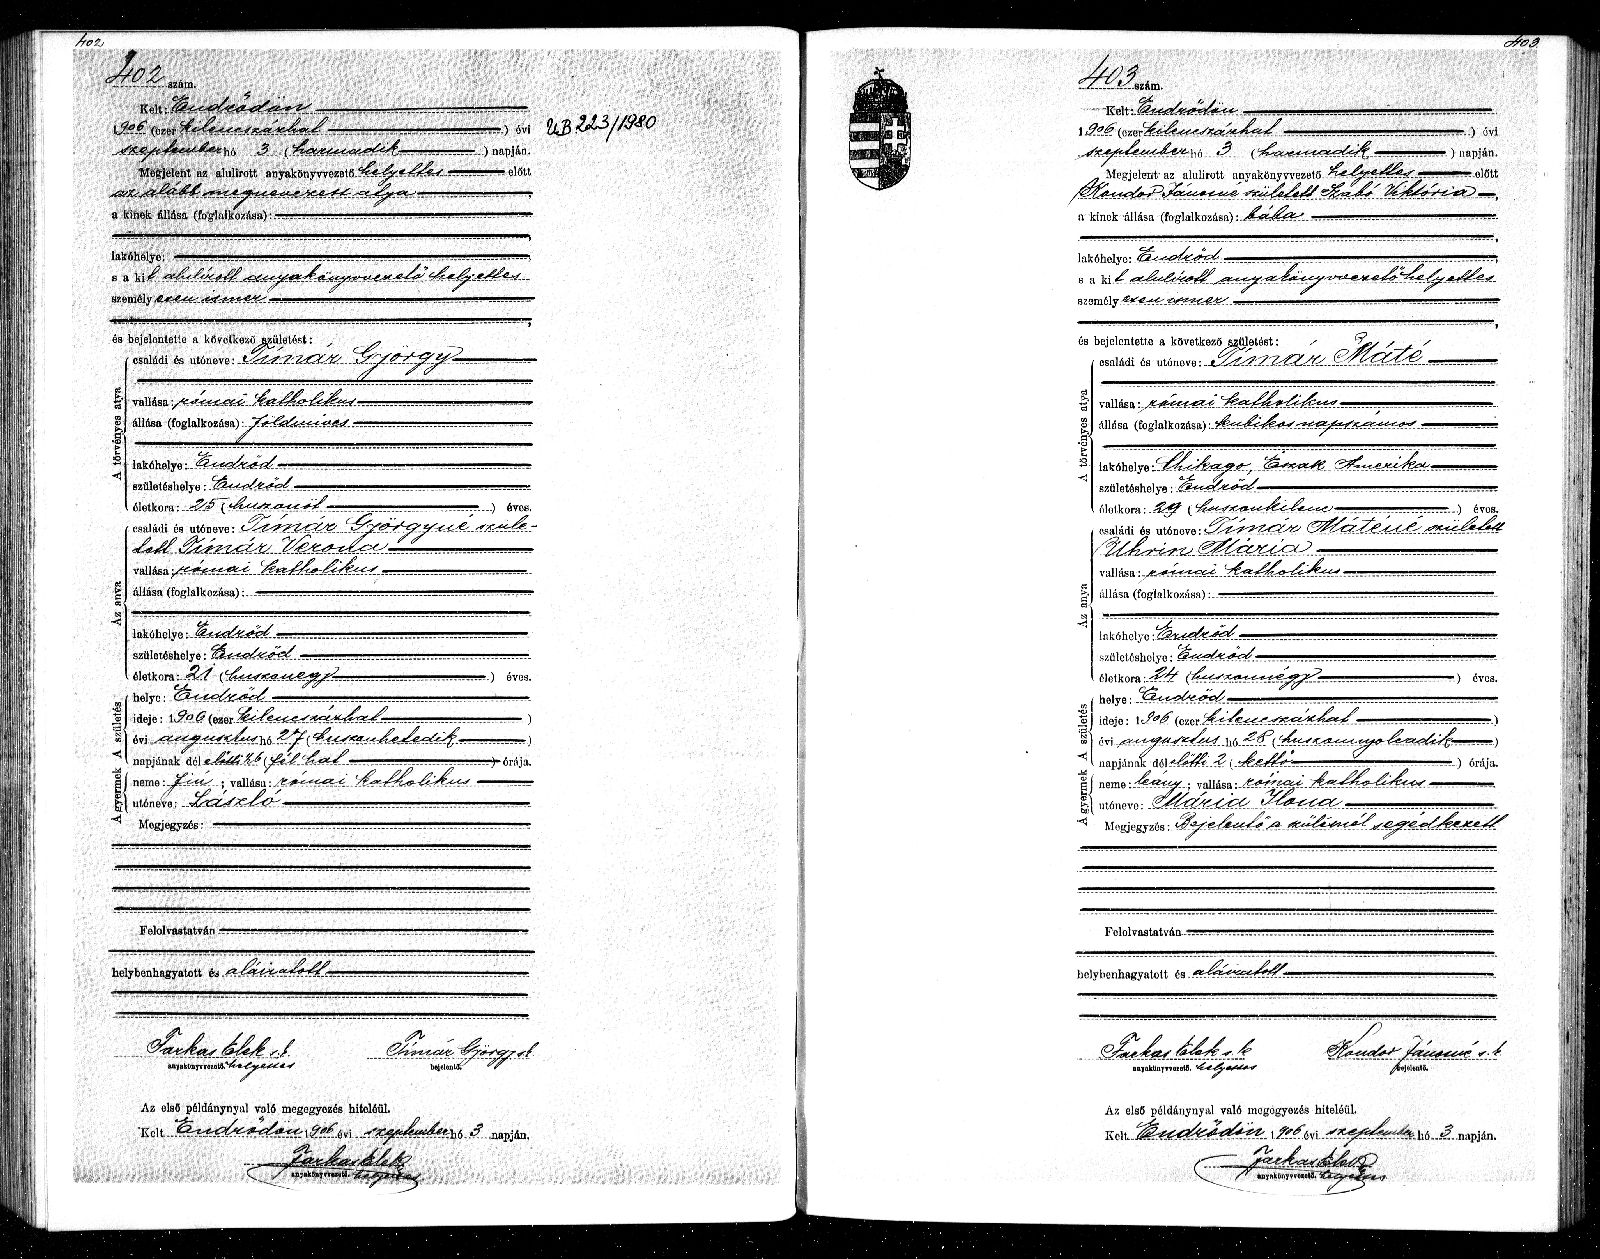 402
402 szám.
Kelt: Endrődön
1906 (ezer kilencszázhat) évi
szeptember hó 3 (harmadik) napján.
Megjelent az alulirott anyakönyvvezető helyettes előtt
az alább megnevezett atya,
a kinek állása (foglalkozása):
lakóhelye:
s a kit alulírott anyakönyvvezető helyettes
személyesen ismer
és bejelentette a következő születést:
A törvényes atya
családi és utóneve: Tímár György
vallása: római katholikus
állása (foglalkozása): földmives
lakóhelye: Endrőd
születéshelye: Endrőd
életkora: 25 (huszonöt) éves.
Az anya
családi és utóneve: Tímár Györgyné szüle-
tett Tímár Verona
vallása: római katholikus
állása (foglalkozása):
lakóhelye: Endrőd
születéshelye: Endrőd
életkora: 21 (huszonegy) éves.
A születés
helye: Endrőd
ideje: 1906 (ezer kilencszázhat)
évi augusztus hó 27 (huszonhetedik)
napjának dél előtti ½6 (fél hat) órája.
A gyermek
neme: fiú; vallása: római katholikus
utóneve: László
Megjegyzés:
Felolvastatván
helybenhagyatott és aláiratott
Farkas Elek s.k. Tímár György s.k.
anyakönyvvezető. helyettes bejelentő.
Az első példánynyal való megegyezés hiteléül.
Kelt Endrődön 1906 évi szeptember hó 3 napján.
Farkas Elek
anyakönyvvezető. helyettes
UB 223/1980
403
403 szám.
Kelt: Endrődön
1906 (ezer kilencszázhat) évi
szeptember hó 3 (harmadik) napján.
Megjelent az alulirott anyakönyvvezető helyettes előtt
Kondor Jánosné született Szabó Viktória,
a kinek állása (foglalkozása): bába
lakóhelye: Endrőd
s a kit alulírott anyakönyvvezető helyettes
személyesen ismer
és bejelentette a következő születést:
A törvényes atya
családi és utóneve: Tímár Máté
vallása: római katholikus
állása (foglalkozása): kubikos napszámos
lakóhelye: Chikago, Észak Amerika
születéshelye: Endrőd
életkora: 29 (huszonkilenc) éves.
Az anya
családi és utóneve: Tímár Máténé született
Uhrin Mária
vallása: római katholikus
állása (foglalkozása):
lakóhelye: Endrőd
születéshelye: Endrőd
életkora: 24 (huszonnégy) éves.
A születés
helye: Endrőd
ideje: 1906 (ezer kilencszázhat)
évi augusztus hó 28 (huszonnyolcadik)
napjának dél előtti 2 (kettő) órája.
A gyermek
neme: leány; vallása: római katholikus
utóneve: Mária Ilona
Megjegyzés: Bejelentő a szülésnél segédkezett
Felolvastatván
helybenhagyatott és aláiratott
Farkas Elek s.k. Kondor Jánosné s.k.
anyakönyvvezető. helyettes bejelentő.
Az első példánynyal való megegyezés hiteléül.
Kelt Endrődön 1906 évi szeptember hó 3 napján.
Farkas Elek
anyakönyvvezető. helyettes